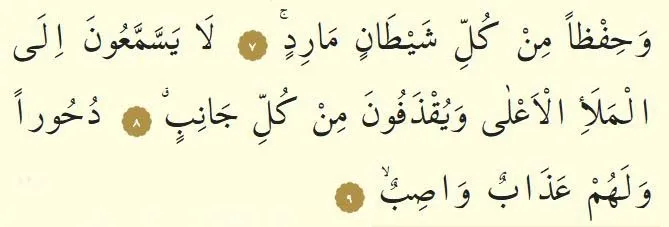 وَحِفْظاً مِنْ كُلِّ شَيْطَانٍ مَارِدٍۚ ٧ لَا يَسَّمَّعُونَ اِلَى
الْمَلَأِ الْاَعْلٰى وَيُقْذَفُونَ مِنْ كُلِّ جَانِبٍۗ ٨ دُحُوراً
وَلَهُمْ عَذَابٌ وَاصِبٌۙ ٩